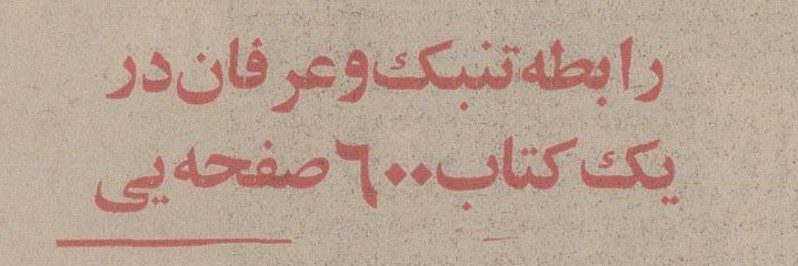 رابطه تنبک و عرفان در
یک کتاب ۶۰۰ صفحه یی